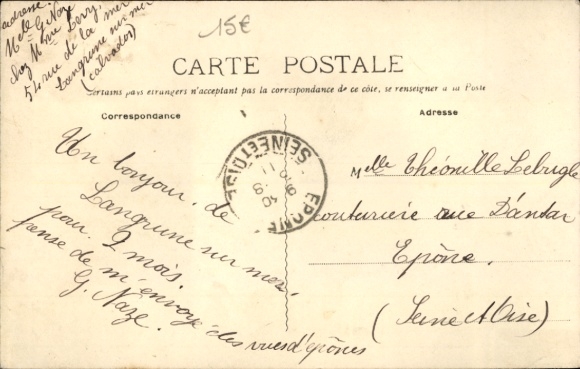 adresse:
Melle G Naze
chez Mme Lerry,
54 rue de la mer
Langrune sur mer
(Calvados)
15€
CARTE POSTALE
Certains pays étrangers n'acceptent pas la correspondance de ce côté, se renseigner à la Poste
Correspondance
Adresse
Un bonjour, de
Langrune sur mer,
pour 2 mois.
pense de m'envoyé des vues d'epônes
G. Naze.
EPONE
SEINE ET OISE
Melle Théonille Lebrigle
couturière rue D'antar
Epône.
(Seine et Oise)